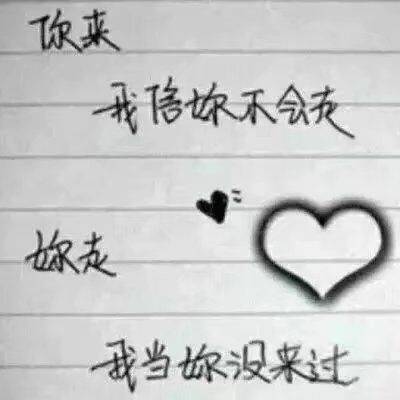 你来
我陪妳不会走
妳走
我当妳没来过